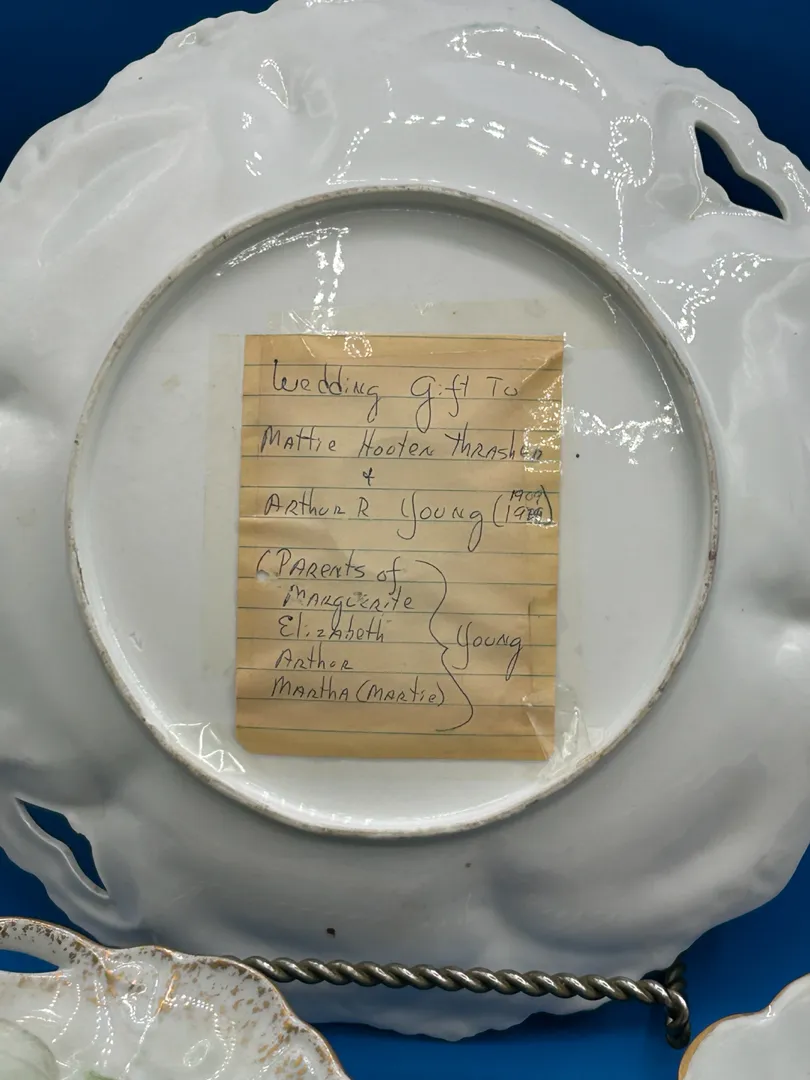 Wedding Gift To
Mattie Hooten Thrasher
&
Arthur R Young (1909)
(Parents of
Marguerite
Elizabeth
Arthur
Martha (Martie)
Young